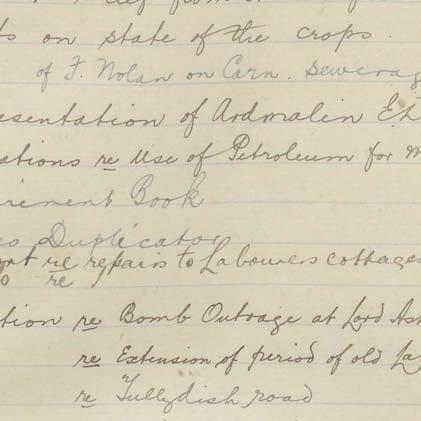 ts on state of the crops.
of F. Nolan on Carn. sewerag
esentation of Ardmalin Et
ations re Use of Petroleum for m
irement Book
Duplicator
rt re repairs to Labourers cottages
o re
tion re Bomb Outrage at Lord As
re Extension of period of old La
re Tullydish road